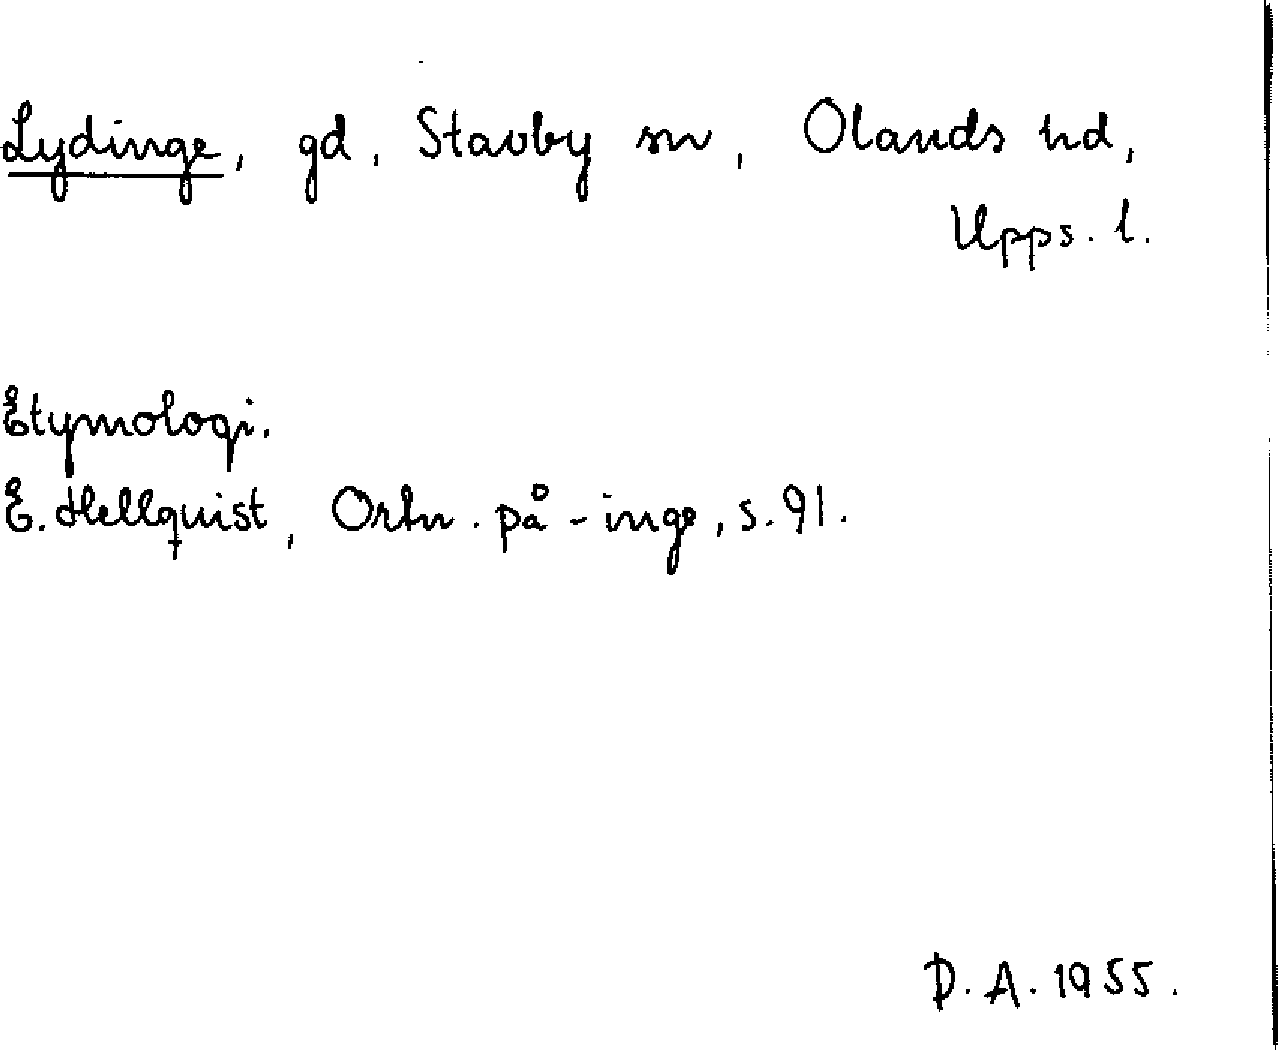 Lydinge, gd, Stavby sn, Olands hd,
Upps. l.
Etymologi.
E. Hellquist, Ortn. på -inge, s. 91.
D. A. 1955.